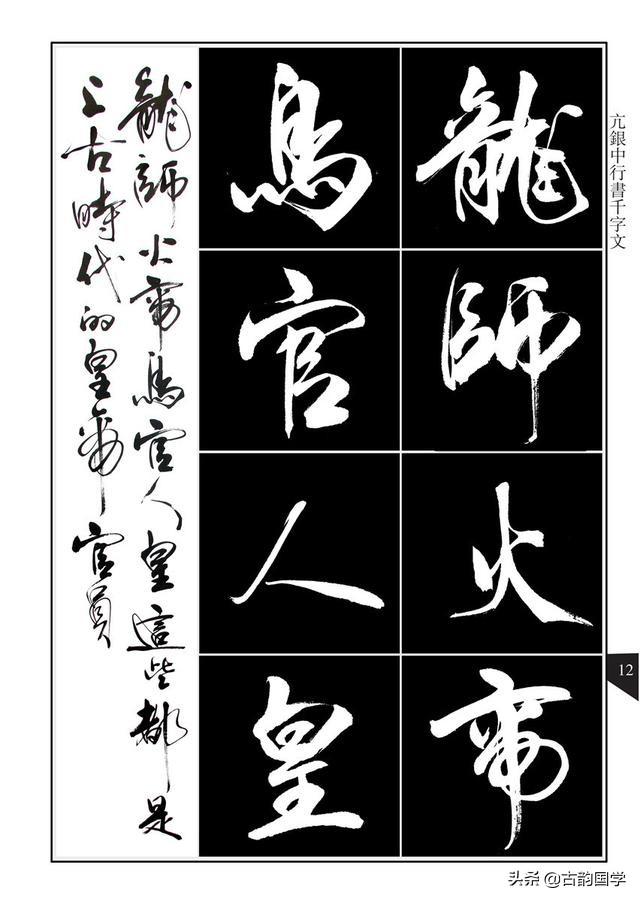 亢銀中行書千字文
龍師火帝
鳥官人皇
龍師火帝鳥官人皇這些都是
上古時代的皇帝官員
12
头条 @古韵国学